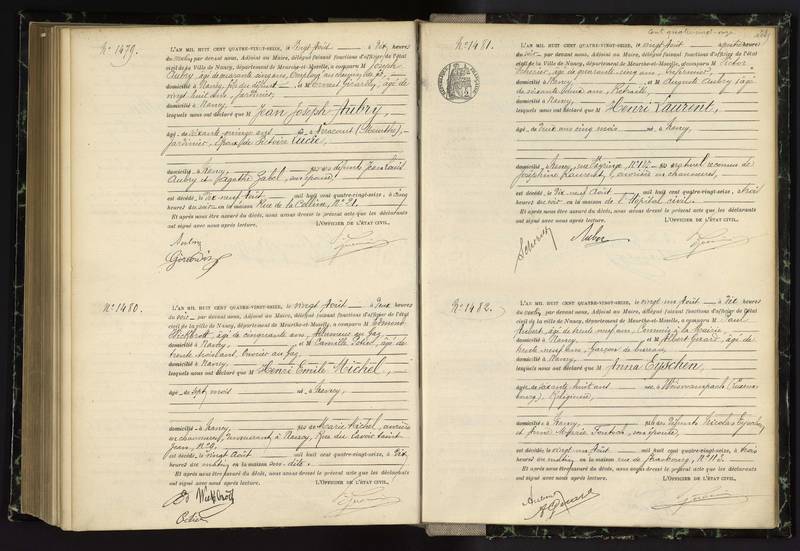 N° 1479.
L'AN MIL HUIT CENT QUATRE-VINGT-SEIZE, le vingt Août — à Dix heures
du matin par devant nous, Adjoint au Maire, délégué faisant fonctions d'officier de l'état
civil de la Ville de Nancy, département de Meurthe-et-Moselle, a comparu M Joseph
Aubry, âgé de quarante cinq ans, Employé au chemin de fer,
domicilié à Nancy, fils du défunt — et M Ernest Girardin, âgé de
vingt huit ans, Jardinier,
domicilié à Nancy
lesquels nous ont déclaré que M Jean Joseph Aubry,
âgé de soixante quinze ans — né à (Meurthe),
jardinier, époux de Victoire Lucie,
domicilié à Nancy — fils des défunts Jean Louis
Aubry et Agathe Gabel, son épouse
est décédé, le Dix neuf Août mil huit cent quatre-vingt-seize, à cinq
heures du soir en la maison Rue de la Colline, N° 21.
Et après nous être assuré du décès, nous avons dressé le présent acte que les déclarants
ont signé avec nous après lecture.
L'OFFICIER DE L'ÉTAT CIVIL,
Aubry
Girardin
N° 1480.
L'AN MIL HUIT CENT QUATRE-VINGT-SEIZE, le vingt Août — à Deux heures
du soir — par devant nous, Adjoint au Maire, délégué faisant fonctions d'officier de l'état
civil de la ville de Nancy, département de Meurthe-et-Moselle, a comparu M Edmond
âgé de cinquante ans, Allumeur au Gaz
domicilié à Nancy — et M Camille âgé de
trente ans, Ouvrier au Gaz
domicilié à Nancy
lesquels nous ont déclaré que M Henri Emile Michel,
âgé de sept mois — né à Nancy,
domicilié à Nancy — fils de Marie Michel, ouvrière
en chaussures, demeurant à Nancy, Rue du Lavoir Saint
Jean, N° 9,
est décédé, le vingt Août mil huit cent quatre-vingt-seize, à Dix
heures du matin en la maison sus-dite.
Et après nous être assuré du décès, nous avons dressé le présent acte que les déclarants
ont signé avec nous après lecture.
L'OFFICIER DE L'ÉTAT CIVIL,
cent quatre-vingt-onze
N° 1481.
L'AN MIL HUIT CENT QUATRE-VINGT-SEIZE, le vingt Août — à quatre heures
du soir — par devant nous, Adjoint au Maire, délégué faisant fonctions d'officier de l'état
civil de la ville de Nancy, département de Meurthe-et-Moselle, a comparu M Victor
âgé de quarante cinq ans, Infirmier,
domicilié à Nancy — et M Auguste Aubry, âgé
de soixante deux ans, Retraité,
domicilié à Nancy,
lesquels nous ont déclaré que M Henri Laurent,
âgé de Deux ans cinq mois — né à Nancy,
domicilié à Nancy, rue N° — fils naturel reconnu de
Joséphine Laurent, ouvrière en chaussures,
est décédé, le Dix neuf Août mil huit cent quatre-vingt-seize, à trois
heures du soir en la maison de l'hôpital civil.
Et après nous être assuré du décès, nous avons dressé le présent acte que les déclarants
ont signé avec nous après lecture.
L'OFFICIER DE L'ÉTAT CIVIL,
N° 1482.
L'AN MIL HUIT CENT QUATRE-VINGT-SEIZE, le vingt un Août — à Dix heures
du matin par devant nous, Adjoint au Maire, délégué faisant fonctions d'officier de l'état
civil de la ville de Nancy, département de Meurthe-et-Moselle, a comparu M Paul
Aubert, âgé de trente neuf ans, Commis à la Mairie,
domicilié à Nancy — et M Albert Girard, âgé de
trente neuf ans, Garçon de bureau,
domicilié à Nancy
lesquels nous ont déclaré que M Anna Eyschen,
âgée de soixante huit ans — née à Weiswampach (Luxem-
bourg), Religieuse,
domiciliée à Nancy — fille des défunts Nicolas Eyschen
et Anne Marie son épouse
est décédée, le vingt un Août mil huit cent quatre-vingt-seize, à trois
heures du matin en la maison rue de Strasbourg, N°
Et après nous être assuré du décès, nous avons dressé le présent acte que les déclarants
ont signé avec nous après lecture.
L'OFFICIER DE L'ÉTAT CIVIL,
A. Girard